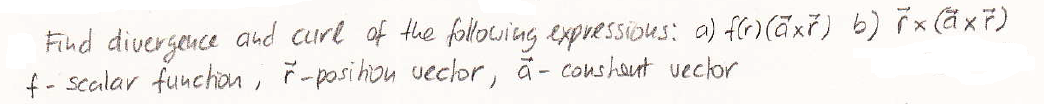 Find divergence and curl of the following expressions: a) f(r)(a⃗×r⃗) b) r⃗×(a⃗×r⃗)
f - scalar function, r⃗ - position vector, a⃗ - constant vector